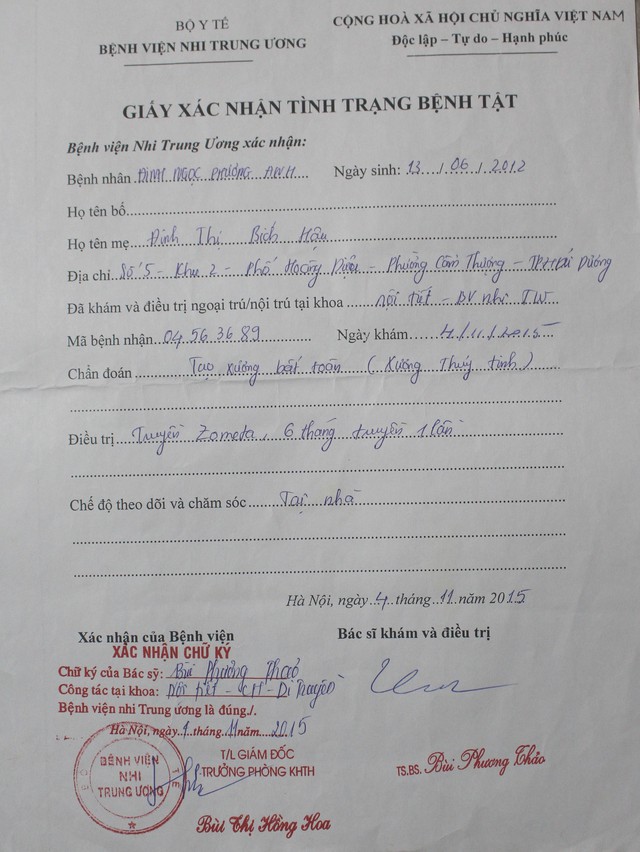 BỘ Y TẾ
BỆNH VIỆN NHI TRUNG ƯƠNG
CỘNG HOÀ XÃ HỘI CHỦ NGHĨA VIỆT NAM
Độc lập – Tự do – Hạnh phúc
GIẤY XÁC NHẬN TÌNH TRẠNG BỆNH TẬT
Bệnh viện Nhi Trung Ương xác nhận:
Bệnh nhân ĐINH NGỌC PHƯƠNG ANH Ngày sinh: 13 / 06 / 2012
Họ tên bố
Họ tên mẹ Đinh Thị Bích Hậu
Địa chỉ Số 5 - Khu 2 - Phố Hoàng Diệu - Phường Cẩm Thượng - TP Hải Dương
Đã khám và điều trị ngoại trú/nội trú tại khoa nội tiết - BV nhi TW
Mã bệnh nhân 04 56 36 89 Ngày khám 4/11/2015
Chẩn đoán Tạo xương bất toàn (Xương Thuỷ tinh)
Điều trị Truyền Zometa, 6 tháng truyền 1 lần
Chế độ theo dõi và chăm sóc Tại nhà
Hà Nội, ngày 4 tháng 11 năm 2015
Xác nhận của Bệnh viện
Bác sĩ khám và điều trị
XÁC NHẬN CHỮ KÝ
Chữ ký của Bác sỹ: Bùi Phương Thảo
Công tác tại khoa: Nội tiết - CH - Di truyền
Bệnh viện nhi Trung ương là đúng./.
Hà Nội, ngày 4 tháng 11 năm 2015
T/L GIÁM ĐỐC
TRƯỞNG PHÒNG KHTH
BỆNH VIỆN
NHI
TRUNG ƯƠNG
TS.BS. Bùi Phương Thảo
Bùi Thị Hồng Hoa